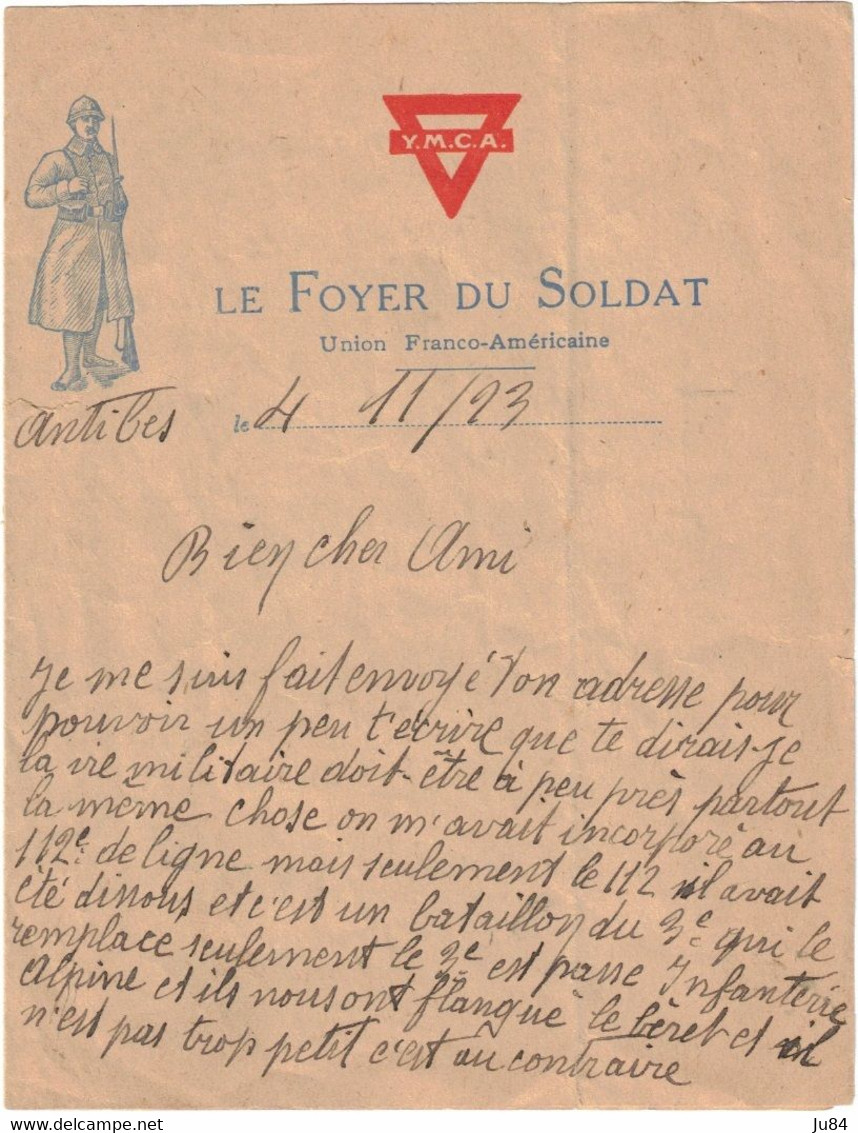 Y.M.C.A.
LE FOYER DU SOLDAT
Union Franco-Américaine
Antibes le 4 11/23
Bien cher Ami
Je me suis fait envoyé ton adresse pour
pouvoir un peu t'écrire que te dirais-je
la vie militaire doit-être à peu près partout
la même chose on m'avait incorporé au
112e de ligne mais seulement le 112 il avait
été dissous et c'est un bataillon du 3e qui le
remplace seulement le 3e est passe Infanterie
Alpine et ils nous ont flanqué le bèret et il
n'est pas trop petit c'est au contraire
delcampe.net
Ju84